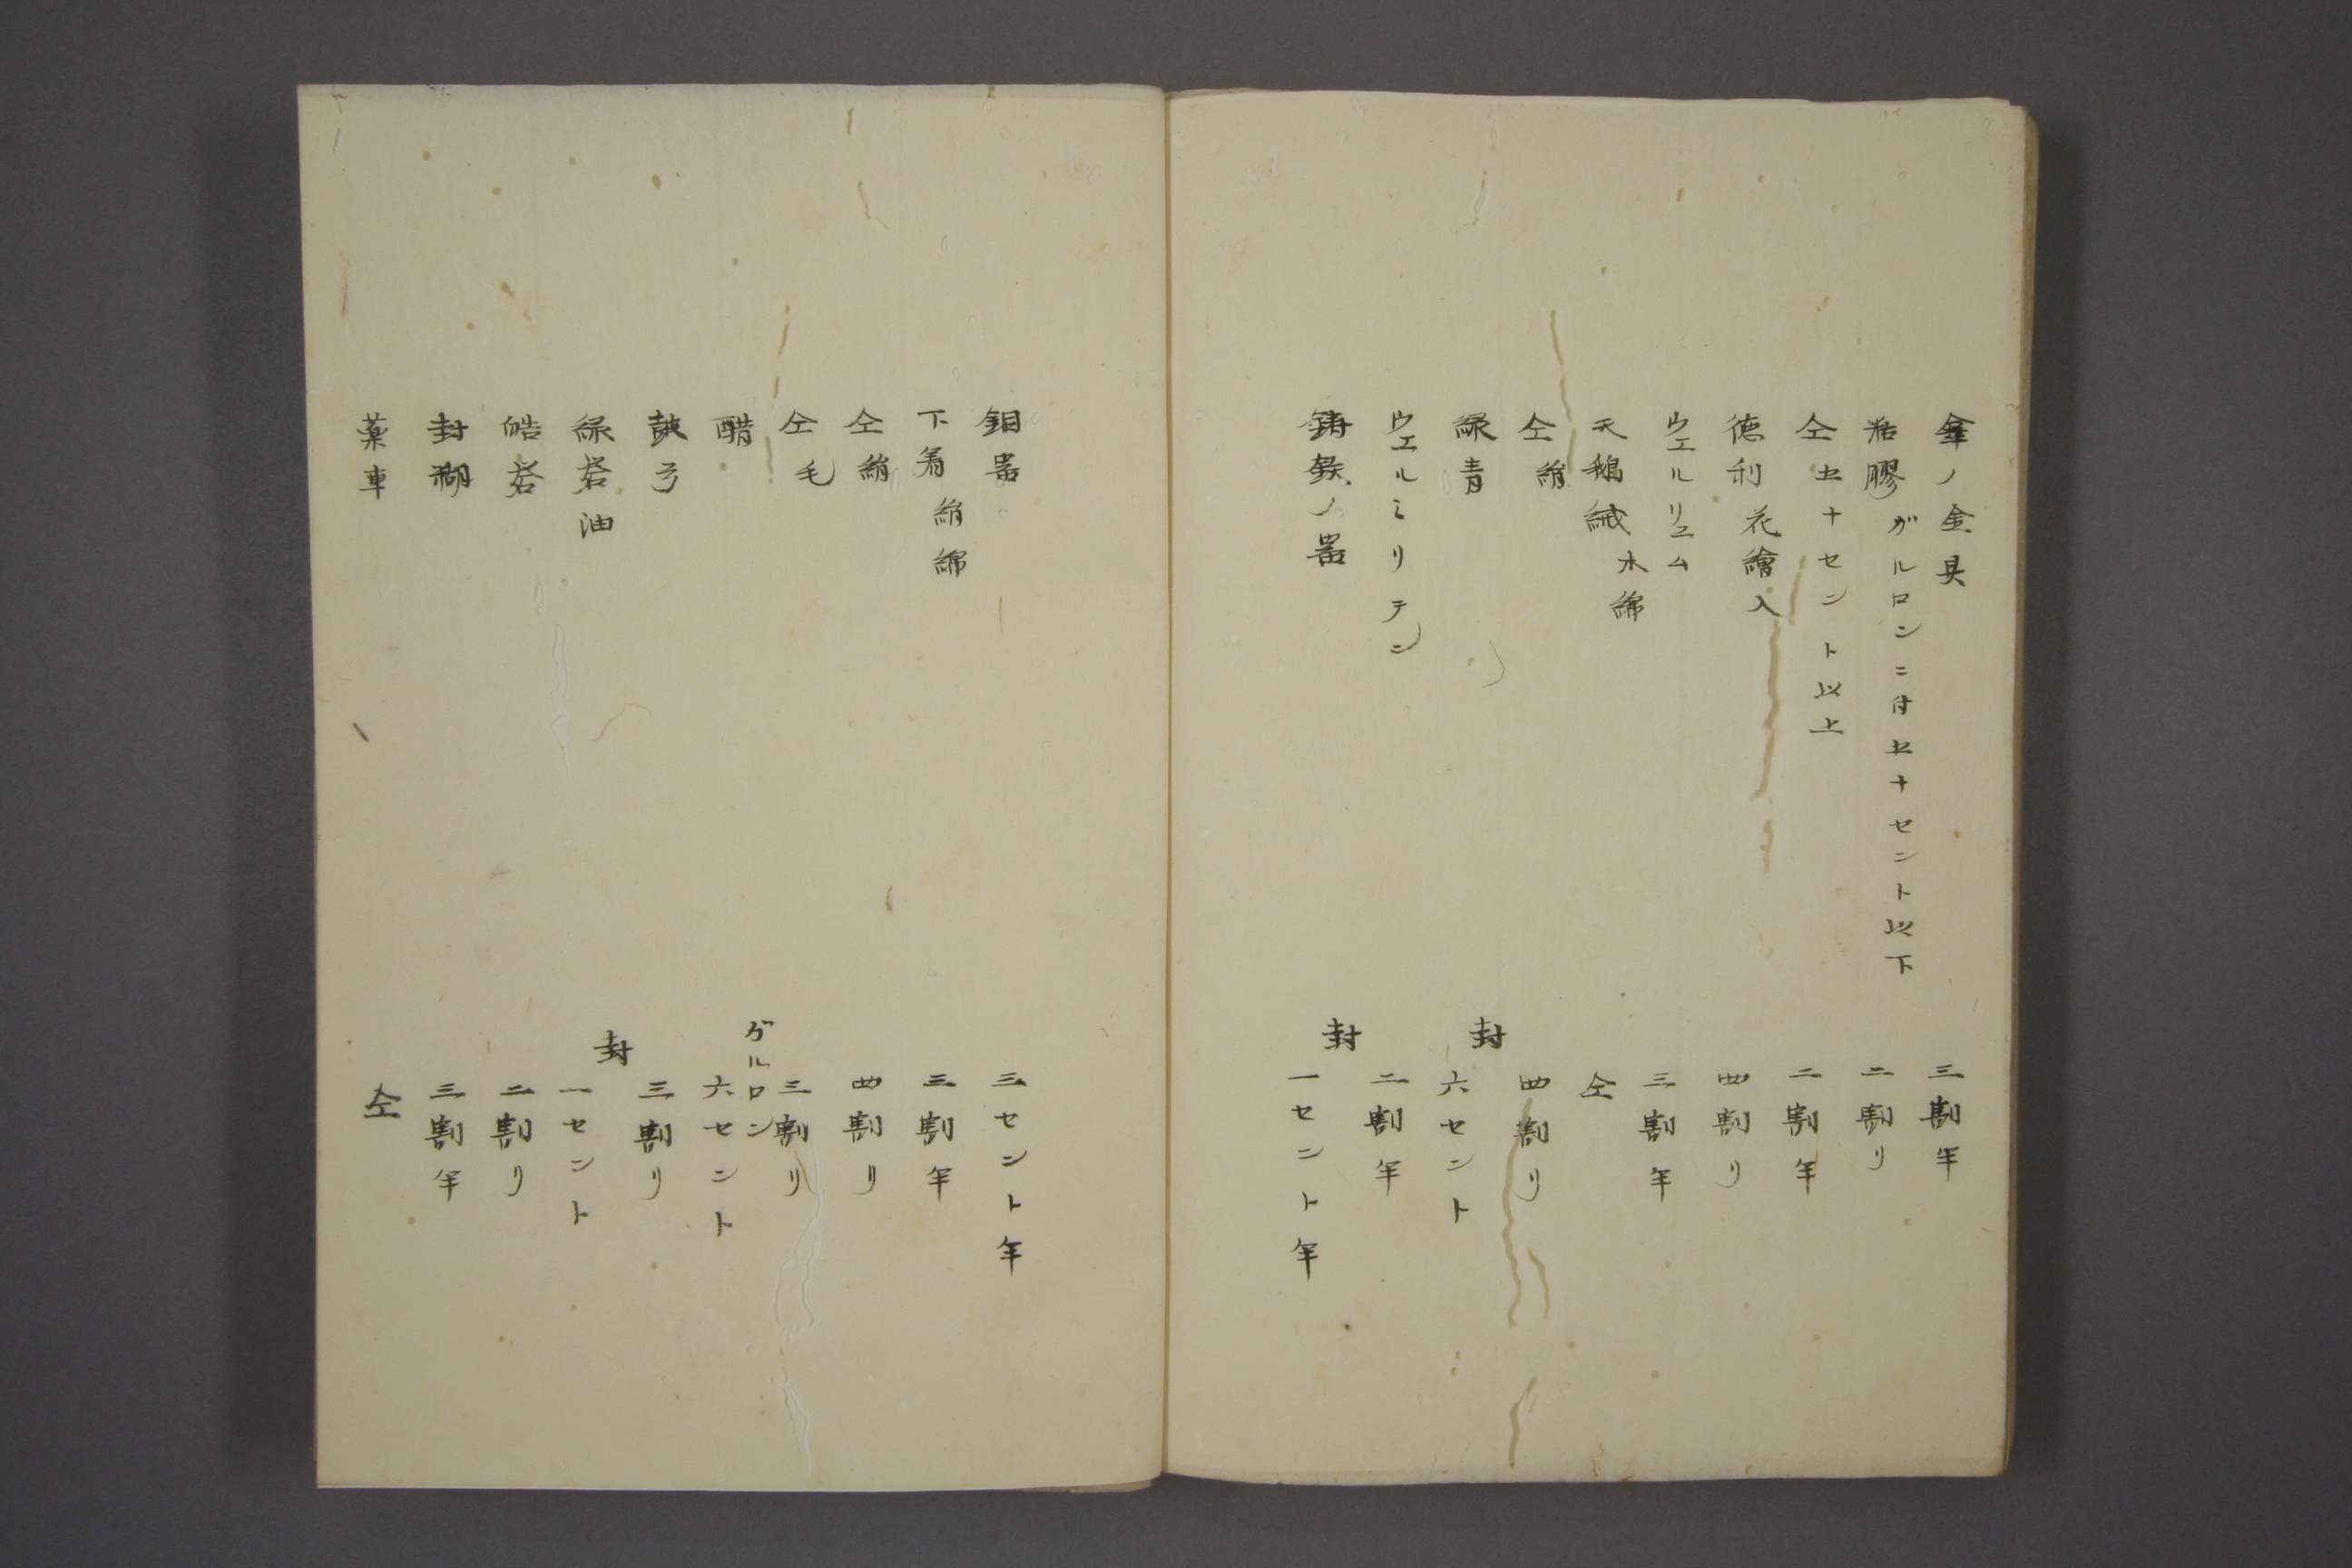 傘ノ金具 三割半
活膠 ガルロンニ付廿十セント以下 二割リ
仝廿十セント以上 二割半
徳利花繪入 四割リ
ウエルリユム 三割半
天鵝絨 木綿 仝
仝絹 四割リ
緑青 封 六セント
ウエルミリテン 二割半
鋳鉄ノ器 封 一セント半
鉛器 三セント半
下着 絹綿 三割半
仝絹 四割リ
仝毛 三割リ
醋 ガルロン 六セント
鼓弓 三割リ
緑礬油 封 一セント
皓礬 二割リ
封糊 三割半
薬車 仝